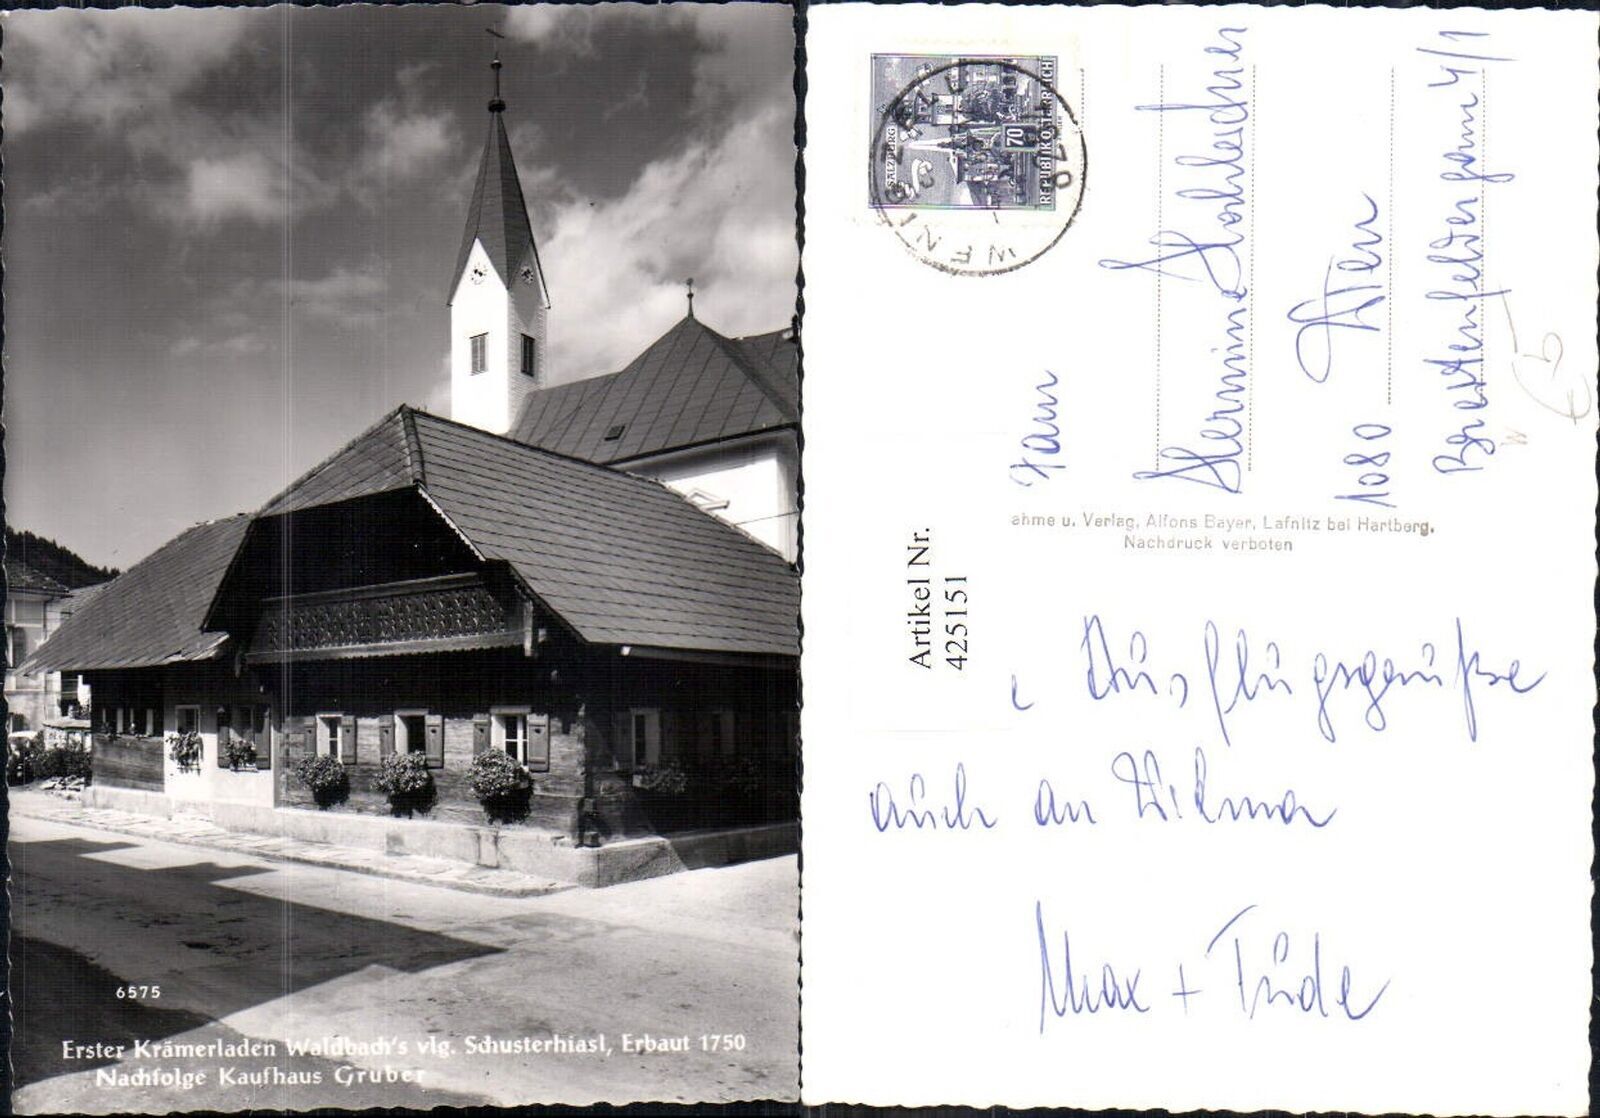 6575
Erster Krämerladen Waldbach's vlg. Schusterhiasl, Erbaut 1750
Nachfolge Kaufhaus Gruber
SALZBURG
70
REPUBLIK ÖSTERREICH
WENIGZELL
Frau
Hermine
1080 Wien
4/1
ahme u. Verlag, Alfons Bayer, Lafnitz bei Hartberg.
Nachdruck verboten
Artikel Nr.
425151
Ausflugsgrüße
auch an Wilma
Max + Trude